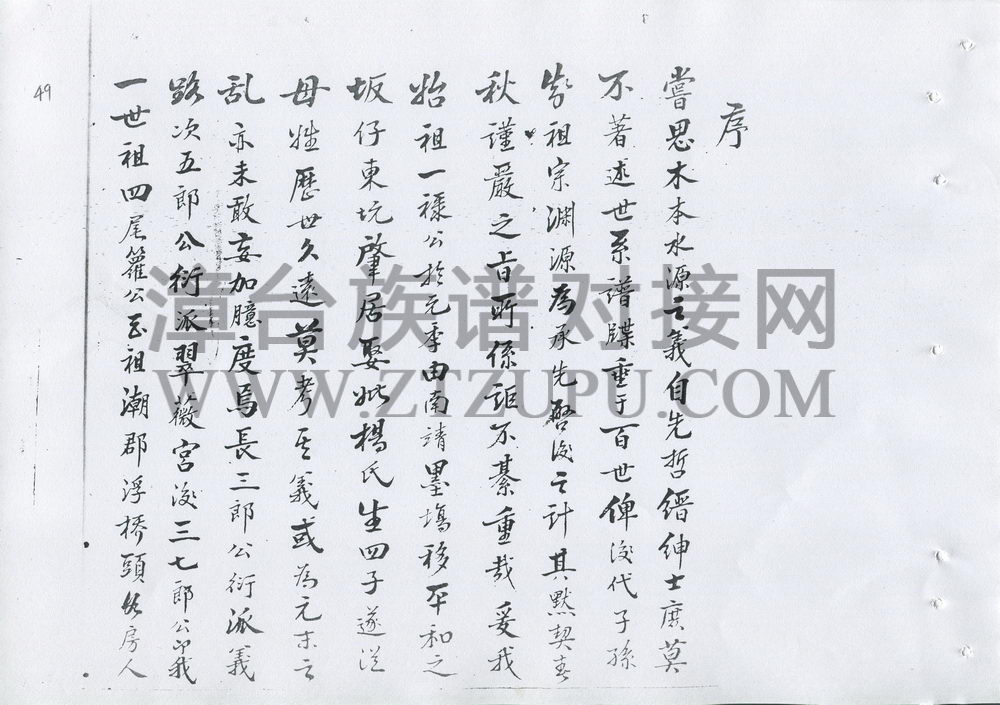 序
嘗思木本水源之義自先哲缙紳士庶莫
不著述世系譜牒垂于百世俾後代子孫
知祖宗渊源為承先啓後之計其黙契春
秋謹嚴之旨所係詎不綦重哉爰我
始祖一禄公於元季由南靖墨塲移平和之
坂仔東坑肇居娶妣楊氏生四子遂從
母姓歷世久遠莫考其義或為元末之
乱亦未敢妄加臆度焉長三郎公衍派義
路次五郎公衍派翠薇宫後三七郎公即我
一世祖四尾籮公至祖潮郡浮橋頭各房人
49
漳台族谱对接网
WWW.ZTZUPU.COM